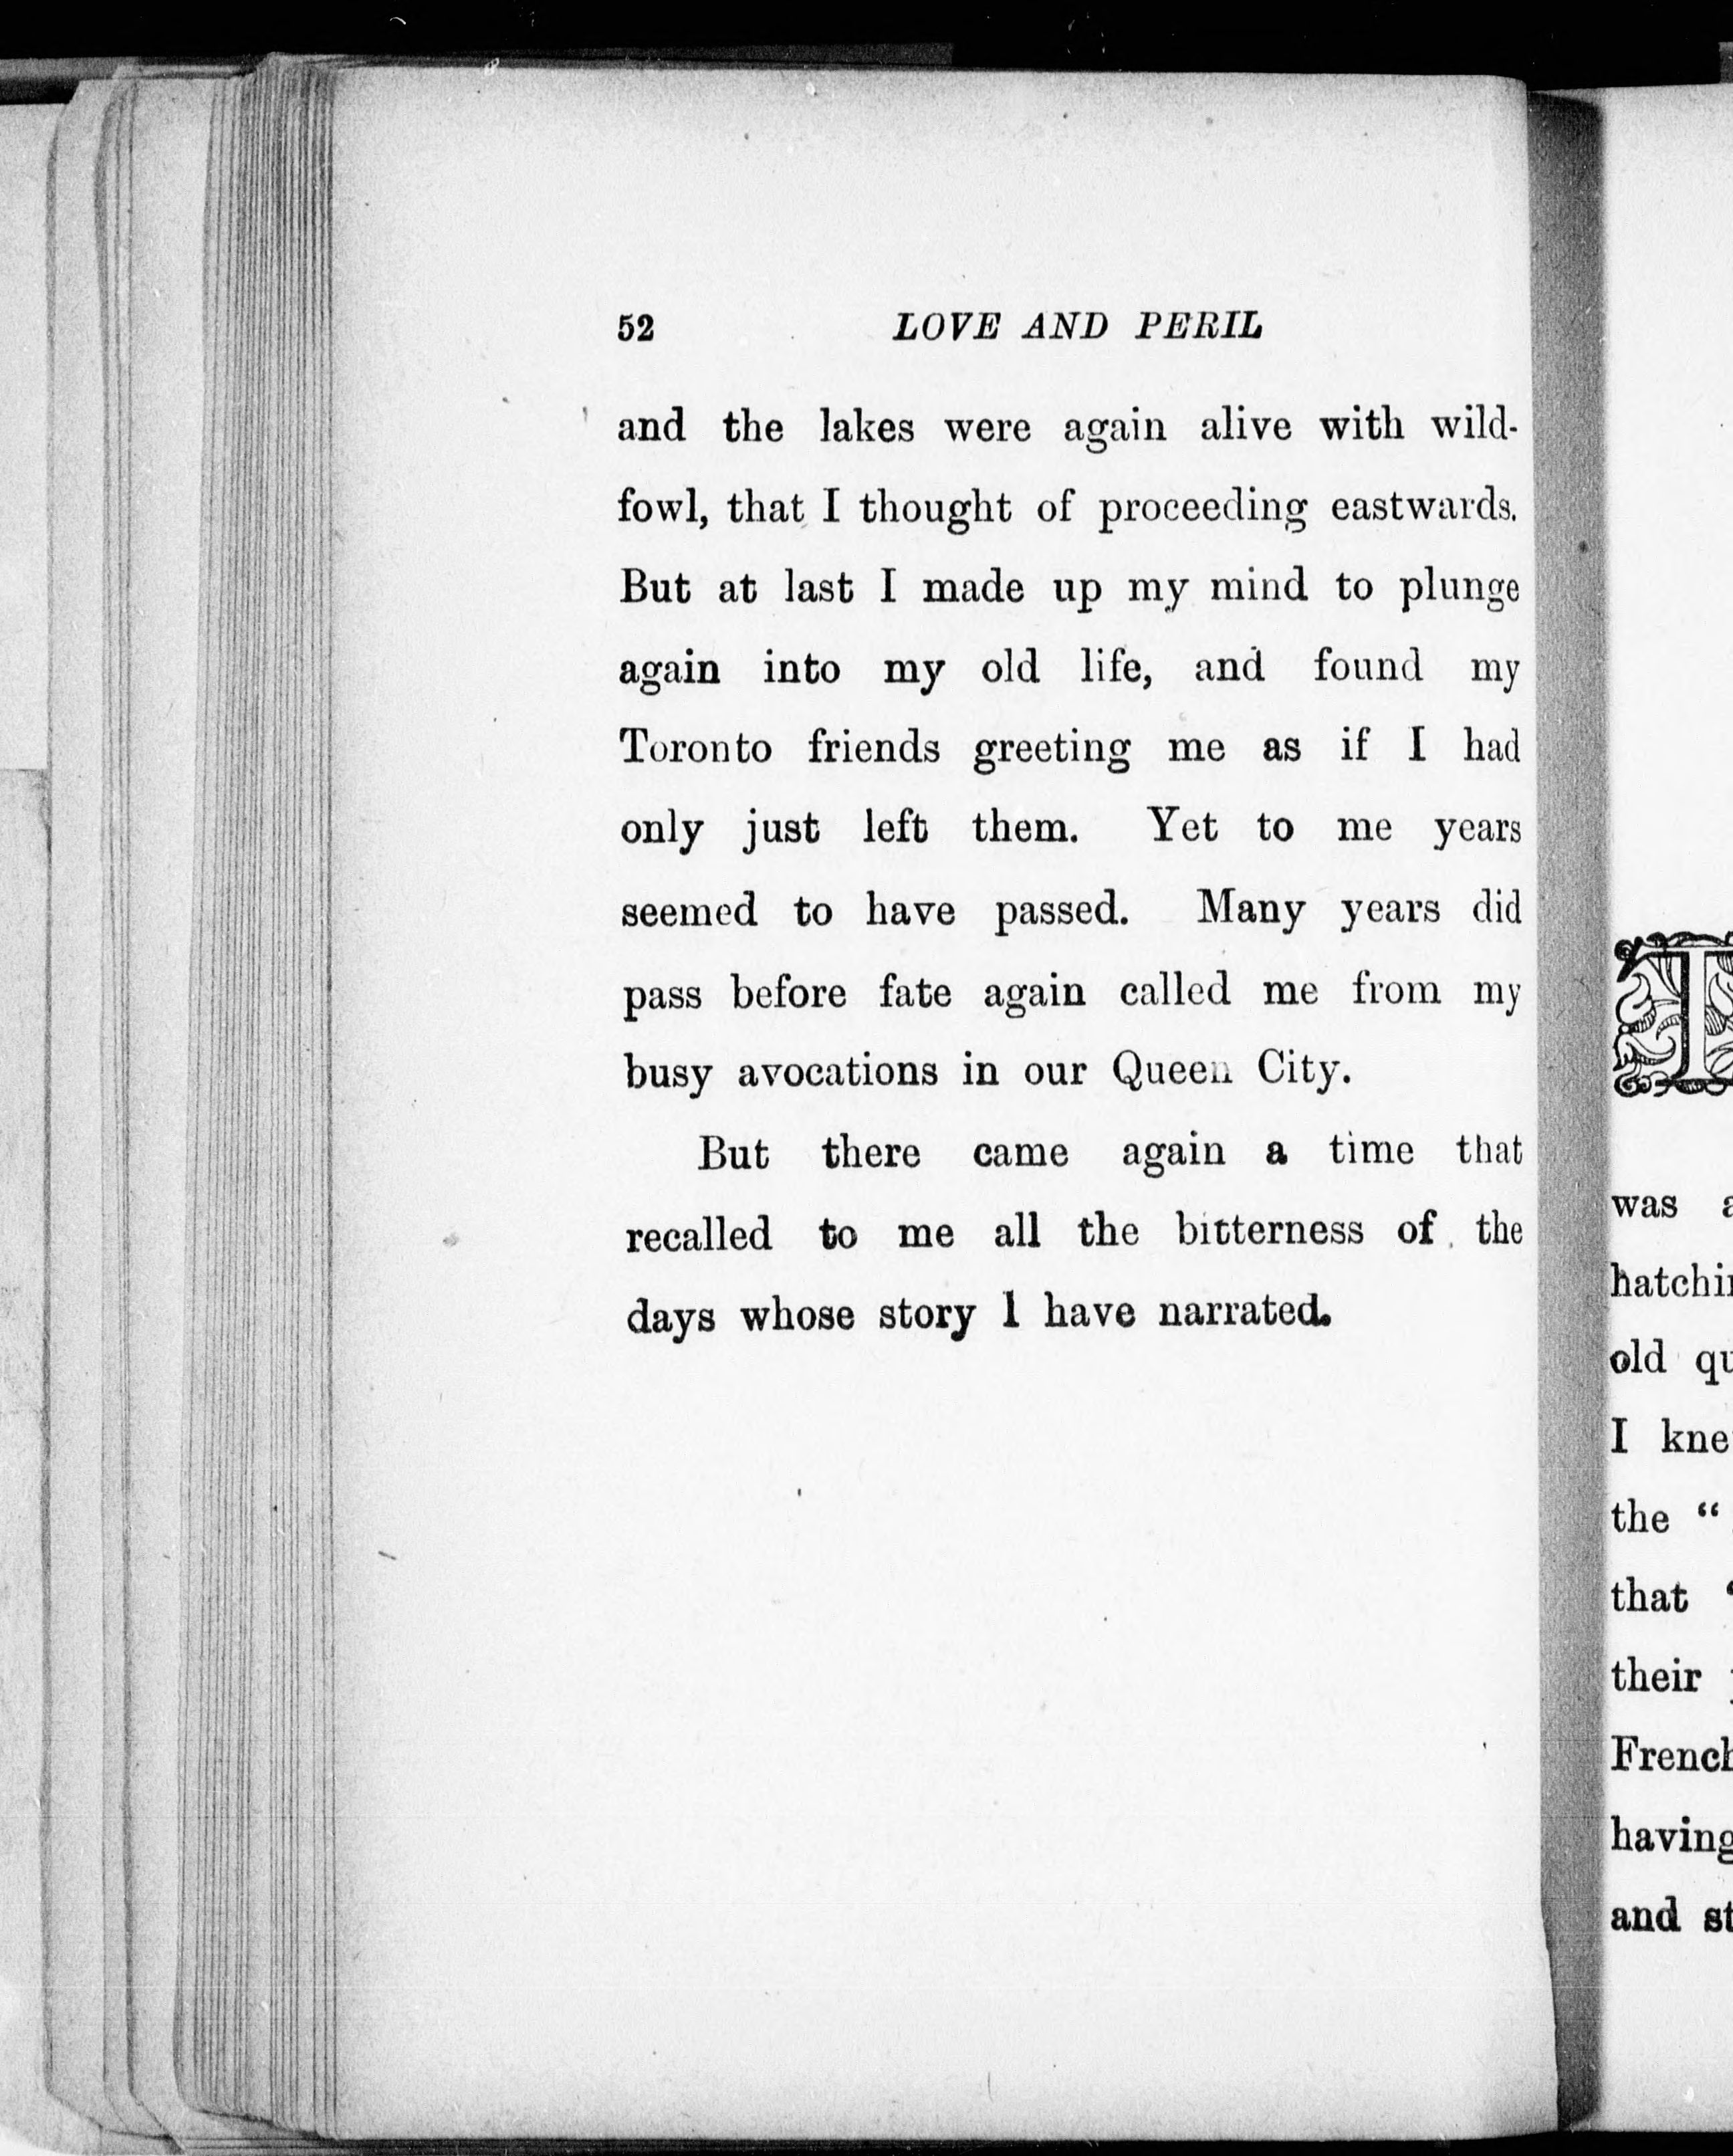 52 LOVE AND PERIL
and the lakes were again alive with wild-
fowl, that I thought of proceeding eastwards.
But at last I made up my mind to plunge
again into my old life, and found my
Toronto friends greeting me as if I had
only just left them. Yet to me years
seemed to have passed. Many years did
pass before fate again called me from my
busy avocations in our Queen City.
But there came again a time that
recalled to me all the bitterness of the
days whose story I have narrated.
T
was
hatchi
old qu
I kne
the "
that "
their
French
having
and st